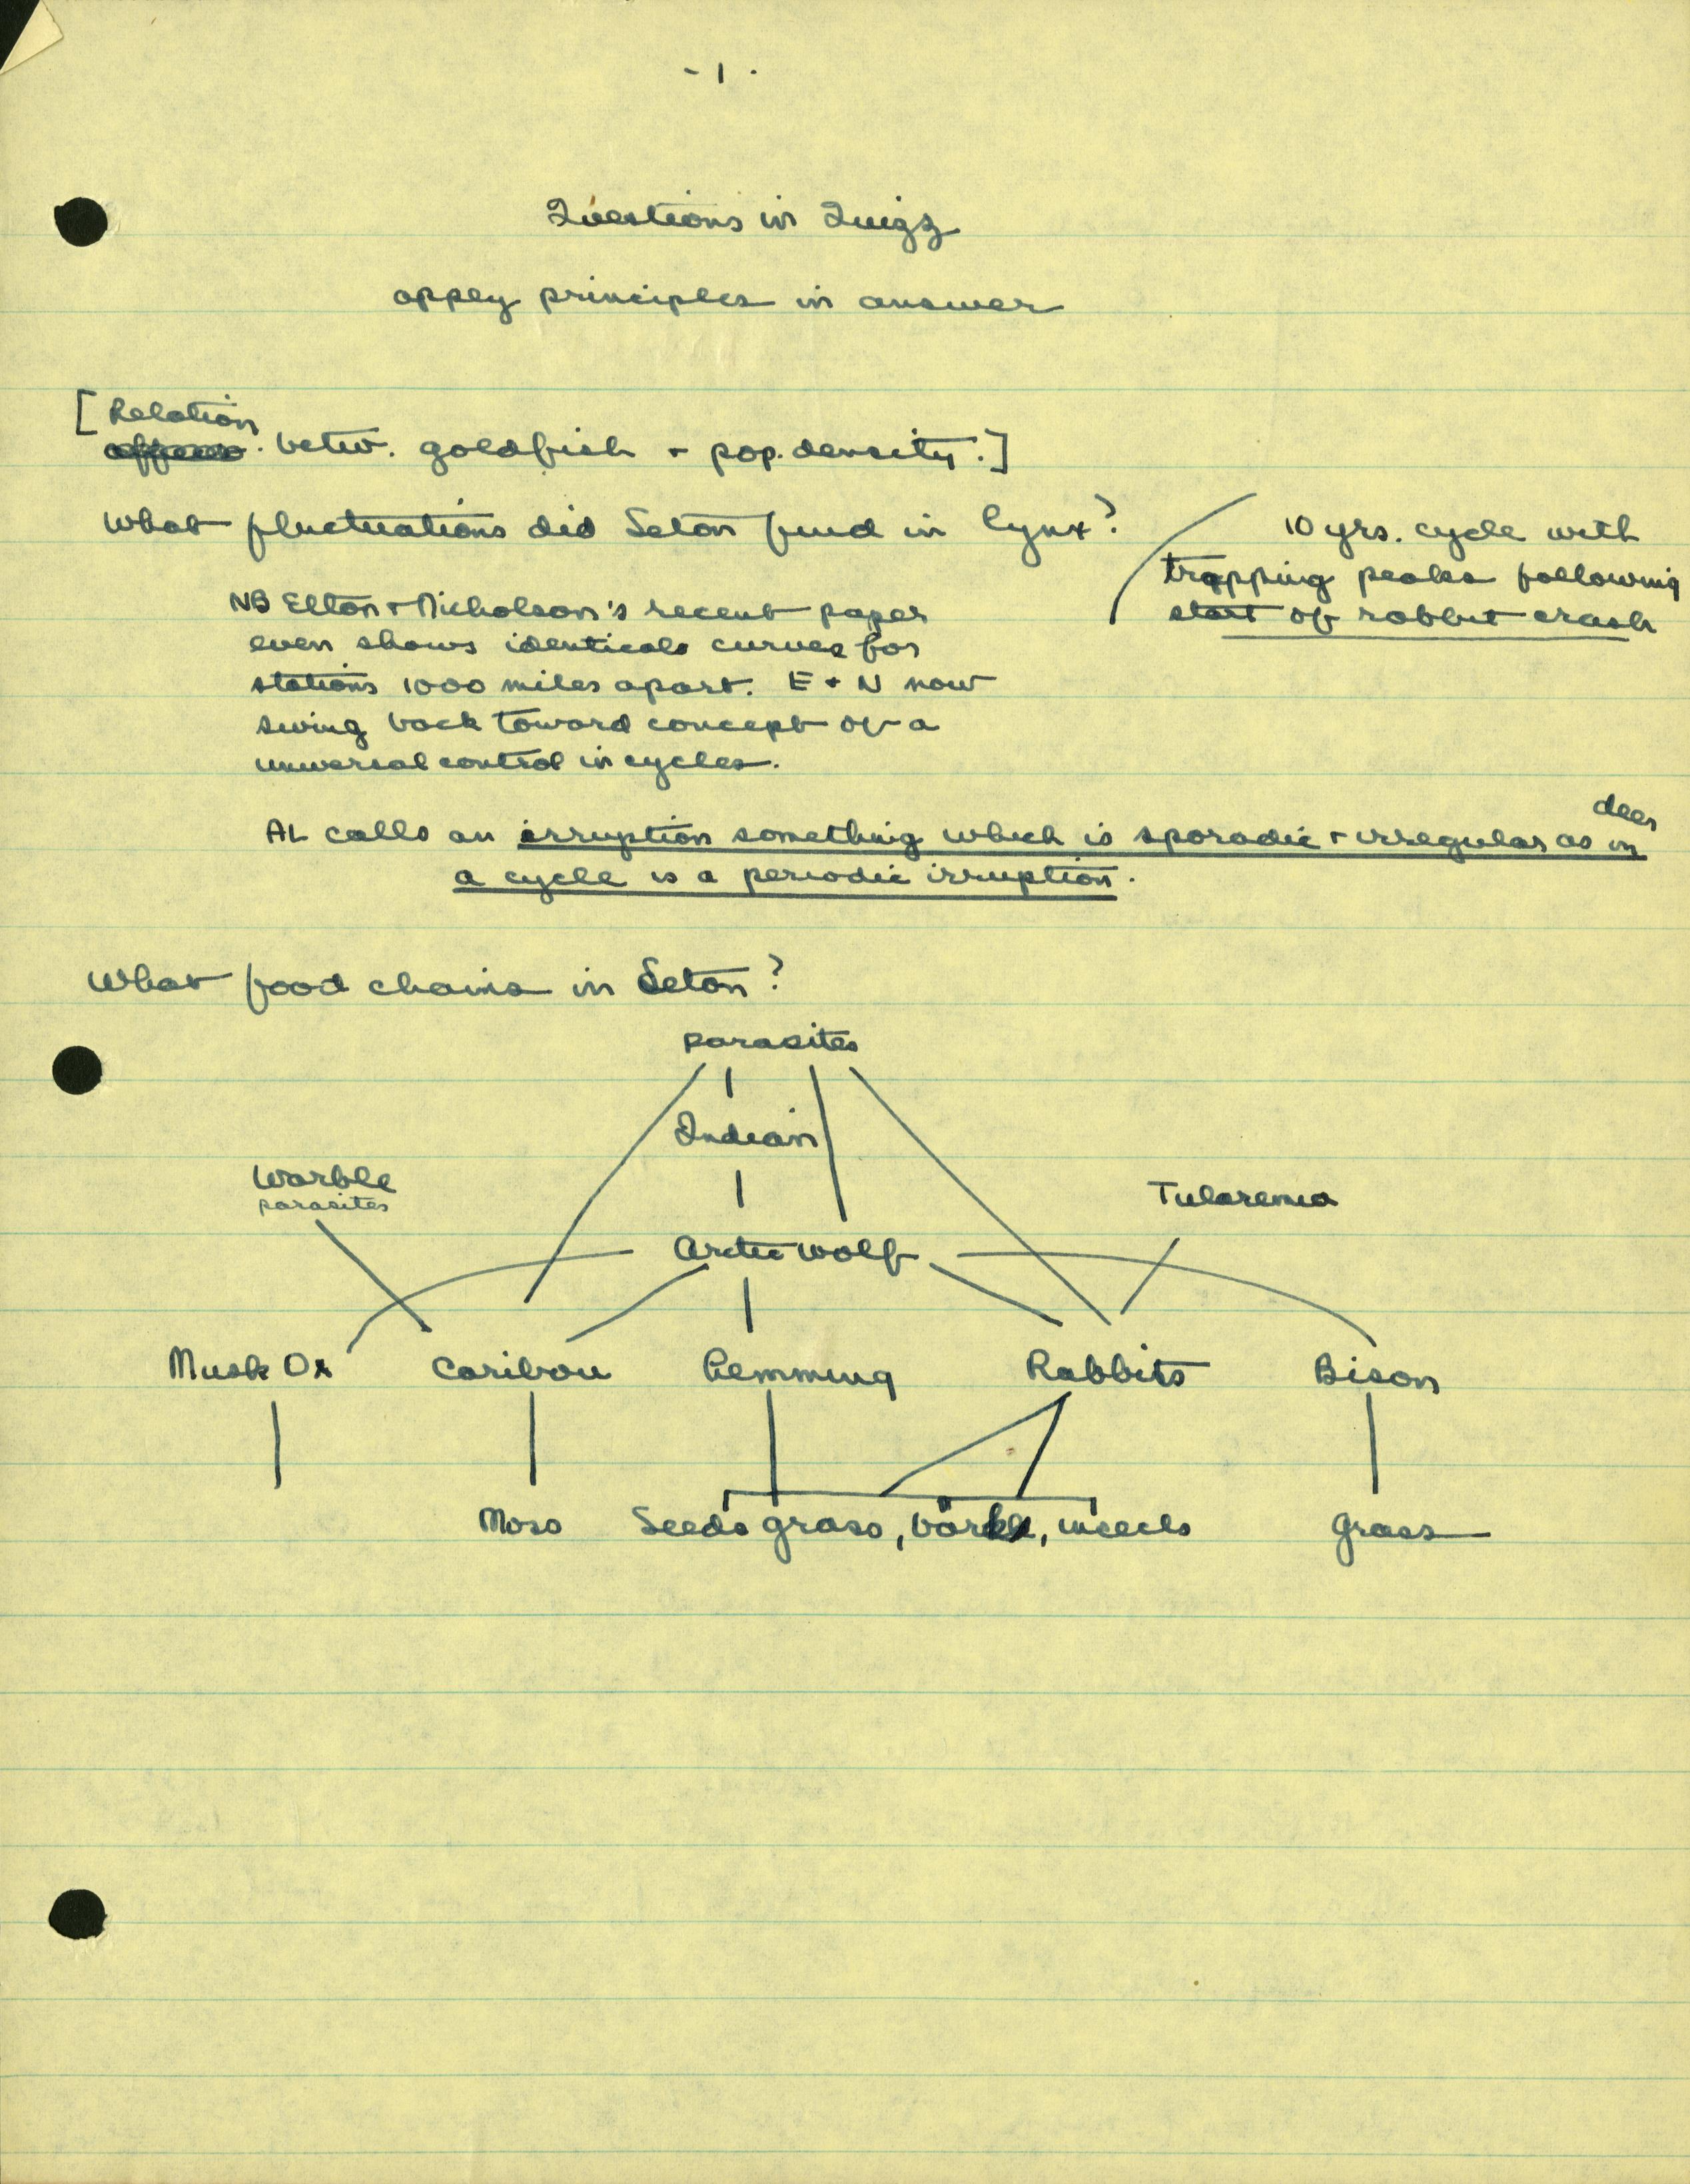 - 1 -
Questions in Quizz
apply principles in answer
[Relation
betw. goldfish + pop. density.]
What fluctuations did Seton find in lynx?
10 yrs. cycle with
trapping peaks following
start of rabbit crash
NB Elton + Nicholson's recent paper
even shows identical curves for
stations 1000 miles apart. E + N now
swing back toward concept of a
universal control in cycles.
AL calls an irruption something which is sporadic + irregular as in deer
a cycle is a periodic irruption.
What food chains in Seton?
parasites
Indian
Warble
parasites
Tularemia
Arctic wolf
Musk Ox Caribou Lemming Rabbits Bison
Moss Seeds grass, bark, insects Grass